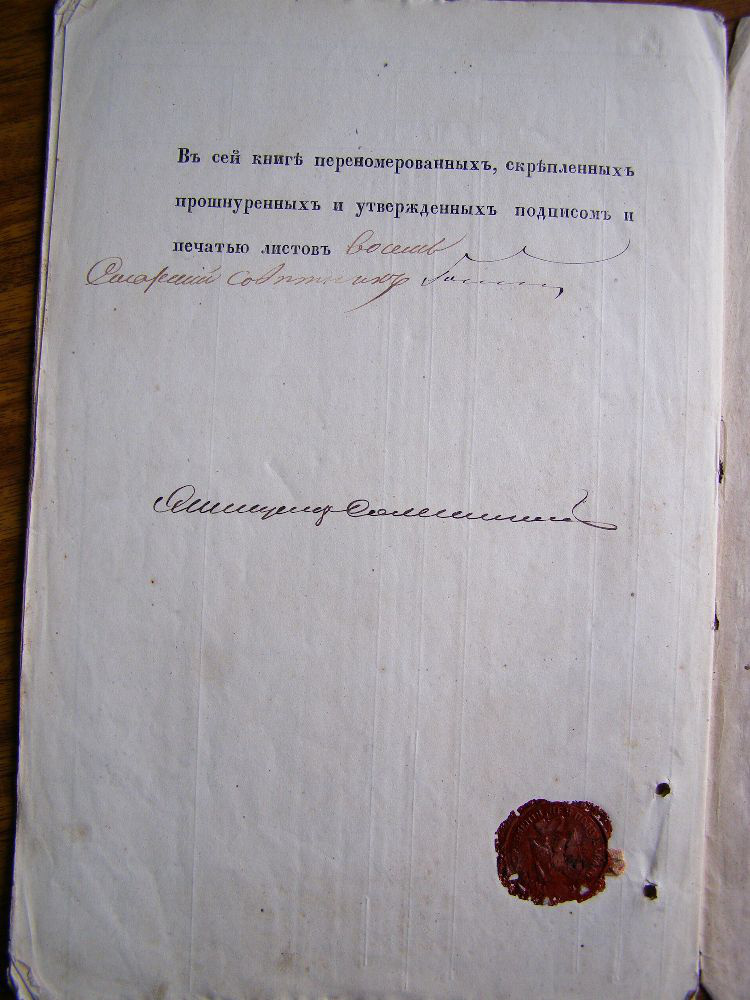 Въ сей книгѣ переномерованныхъ, скрѣпленныхъ
прошнуренныхъ и утвержденныхъ подписомъ и
печатью листовъ восемь
совѣтникъ